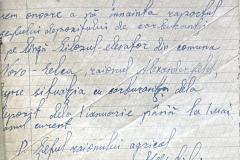 rem onoare a vă înainta raportul
șefului depozitului de carburanți
pe lângă Silozul-elevator din comuna
Novo-Selca, raionul Alexander
spre situația cu carburanții dela
dela 1 ianuarie până la 1 mai
anul curent.
P. Șeful raionului agricol